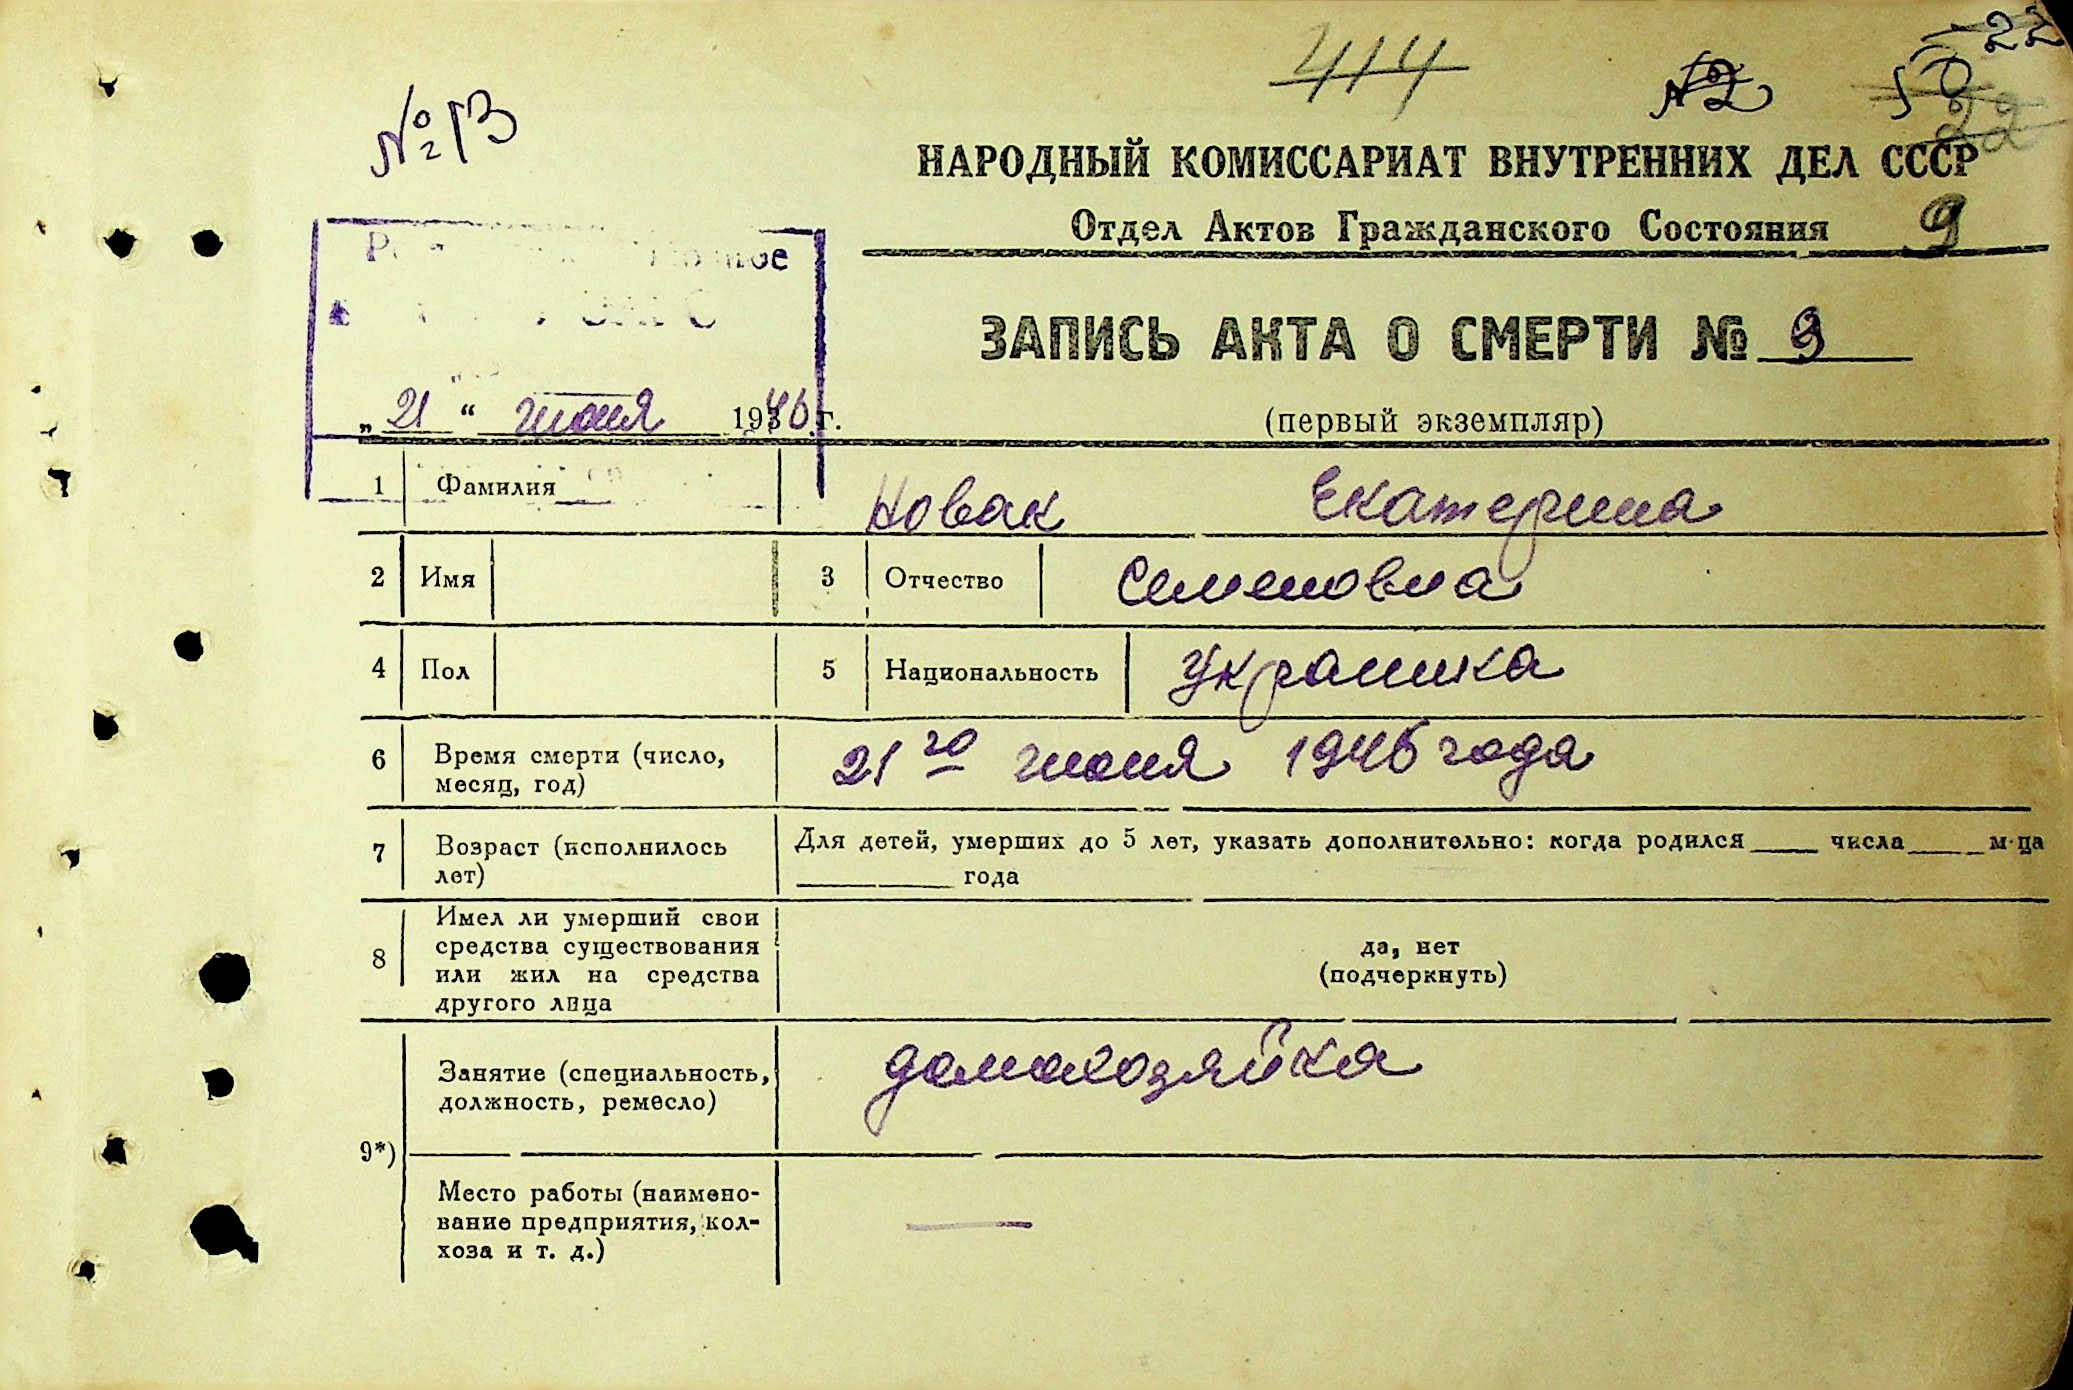 414
№2
50
22
22
№ 13
НАРОДНЫЙ КОМИССАРИАТ ВНУТРЕННИХ ДЕЛ СССР
Отдел Актов Гражданского Состояния 9
ЗАПИСЬ АКТА О СМЕРТИ № 9
„ 21 “ июня 1946 г.
(первый экземпляр)
1 Фамилия Новак Екатерина
2 Имя 3 Отчество Семеновна
4 Пол 5 Национальность Украинка
6 Время смерти (число, месяц, год) 21го июня 1946 года
7 Возраст (исполнилось лет) Для детей, умерших до 5 лет, указать дополнительно: когда родился ____ числа ____ м-ца
____ года
8 Имел ли умерший свои
средства существования
или жил на средства
другого лица
да, нет
(подчеркнуть)
9*) Занятие (специальность,
должность, ремесло)
домохозяйка
Место работы (наимено-
вание предприятия, кол-
хоза и т. д.)
—